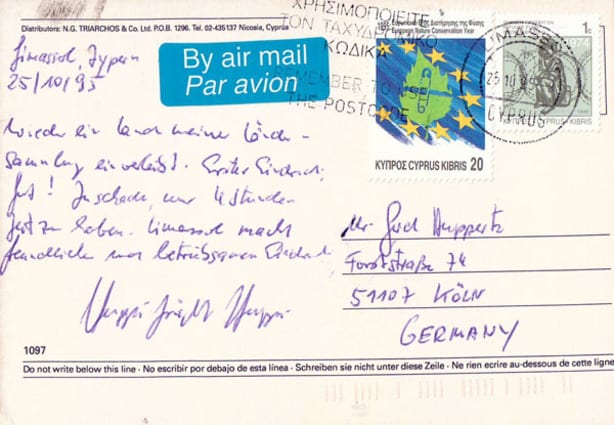 Distributors: N.G. TRIARCHOS & Co. Ltd. P.O.B. 1296. Tel. 02-435137 Nicosia, Cyprus
Limassol, Zypern
25/10/95
By air mail
Par avion
ΧΡΗΣΙΜΟΠΟΙΕΙΤΕ
ΤΟΝ ΤΑΧΥΔΡΟΜΙΚΟ
ΚΩΔΙΚΑ
REMEMBER TO USE
THE POSTCODE
Ευρωπαϊκό Έτος Διατήρησης της Φύσης
European Nature Conservation Year
ΚΥΠΡΟΣ CYPRUS KIBRIS 20
LIMASSOL
25 10 95
CYPRUS
1c
1974
ΚΥΠΡΟΣ CYPRUS KIBRIS
Wieder ein Land meiner Länder-
sammlung einverleibt. Erster Eindruck:
gut! Zu schade, nur 4 Stunden
Zeit zu haben. Limassol macht
freundlichen und betriebsamen Eindruck.
Mr. Huppertz
Forststraße 74
51107 KÖLN
GERMANY
1097
Do not write below this line - No escribir por debajo de esta línea - Schreiben sie nicht unter diese Zeile - Ne rien ecrire au-dessous de cette ligne